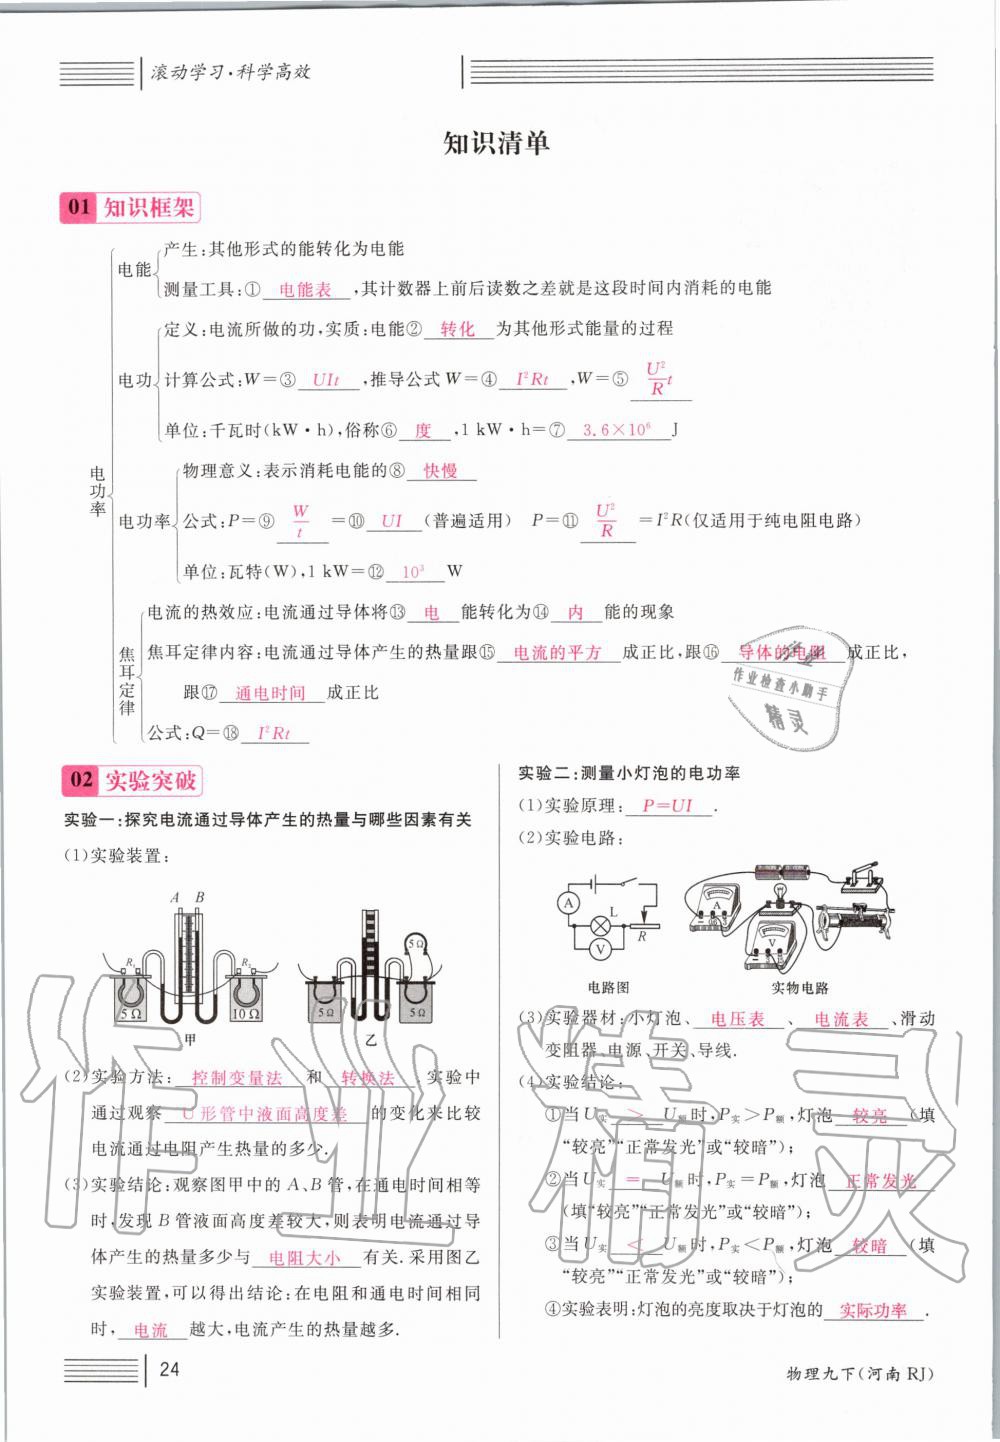 滚动学习·科学高效
知识清单
01 知识框架
电功率
电能
产生:其他形式的能转化为电能
测量工具:① 电能表 ,其计数器上前后读数之差就是这段时间内消耗的电能
电功
定义:电流所做的功,实质:电能② 转化 为其他形式能量的过程
计算公式:W=③ UIt ,推导公式 W=④ I²Rt ,W=⑤ U²/R t
单位:千瓦时(kW·h),俗称⑥ 度 ,1 kW·h=⑦ 3.6×10⁶ J
电功率
物理意义:表示消耗电能的⑧ 快慢
公式:P=⑨ W/t =⑩ UI (普遍适用) P=⑪ U²/R =I²R(仅适用于纯电阻电路)
单位:瓦特(W),1 kW=⑫ 10³ W
焦耳定律
电流的热效应:电流通过导体将⑬ 电 能转化为⑭ 内 能的现象
焦耳定律内容:电流通过导体产生的热量跟⑮ 电流的平方 成正比,跟⑯ 导体的电阻 成正比,
跟⑰ 通电时间 成正比
公式:Q=⑱ I²Rt
作业
作业检查小助手
精灵
02 实验突破
实验一:探究电流通过导体产生的热量与哪些因素有关
(1)实验装置:
A B
R₁ R₂
5 Ω 10 Ω
甲
5 Ω
5 Ω 5 Ω
乙
(2)实验方法: 控制变量法 和 转换法 .实验中
通过观察 U 形管中液面高度差 的变化来比较
电流通过电阻产生热量的多少.
(3)实验结论:观察图甲中的 A、B 管,在通电时间相等
时,发现 B 管液面高度差较大,则表明电流通过导
体产生的热量多少与 电阻大小 有关.采用图乙
实验装置,可以得出结论:在电阻和通电时间相同
时, 电流 越大,电流产生的热量越多.
实验二:测量小灯泡的电功率
(1)实验原理: P=UI .
(2)实验电路:
A L V R
电路图
A V
实物电路
(3)实验器材:小灯泡、 电压表 、 电流表 、滑动
变阻器、电源、开关、导线.
(4)实验结论:
①当 U实 > U额时,P实>P额,灯泡 较亮 (填
“较亮”“正常发光”或“较暗”);
②当 U实 = U额时,P实=P额,灯泡 正常发光
(填“较亮”“正常发光”或“较暗”);
③当 U实 < U额时,P实<P额,灯泡 较暗 (填
“较亮”“正常发光”或“较暗”);
④实验表明:灯泡的亮度取决于灯泡的 实际功率 .
作业精灵
24
物理九下(河南 RJ)